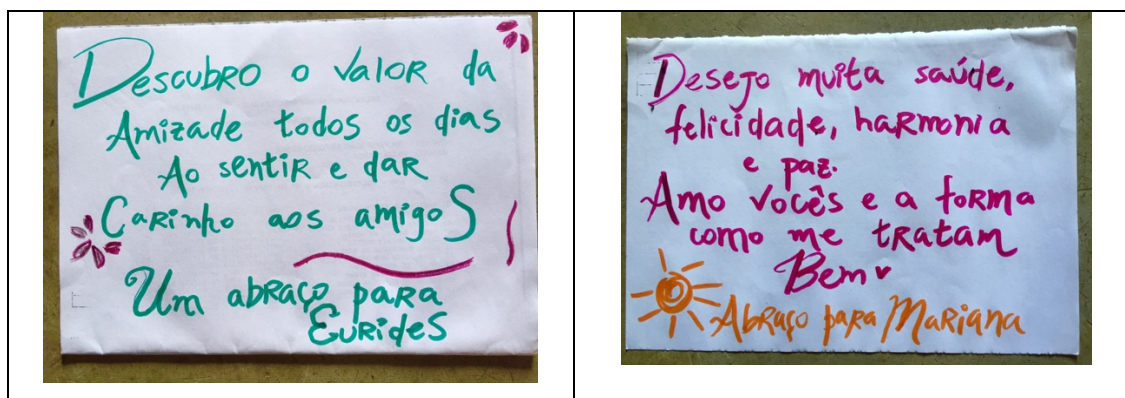 Descubro o valor da
Amizade todos os dias
Ao sentir e dar
Carinho aos amigos
Um abraço para
Eurides
Desejo muita saúde,
felicidade, harmonia
e paz.
Amo vocês e a forma
como me tratam
Bem
Abraço para Mariana